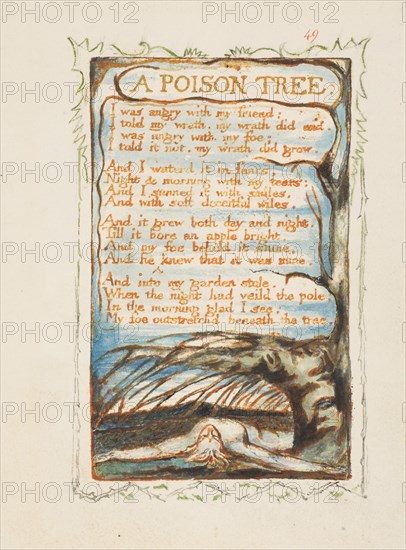 49
A POISON TREE.
I was angry with my friend:
I told my wrath, my wrath did end.
I was angry with my foe:
I told it not, my wrath did grow.
And I waterd it in fears,
Night & morning with my tears:
And I sunned it with smiles,
And with soft deceitful wiles.
And it grew both day and night,
Till it bore an apple bright.
And my foe beheld it shine,
And he knew that it was mine.
And into my garden stole,
When the night had veild the pole;
In the morning glad I see,
My foe outstretchd beneath the tree.
PHOTO12 PHOTO12 PHOTO12